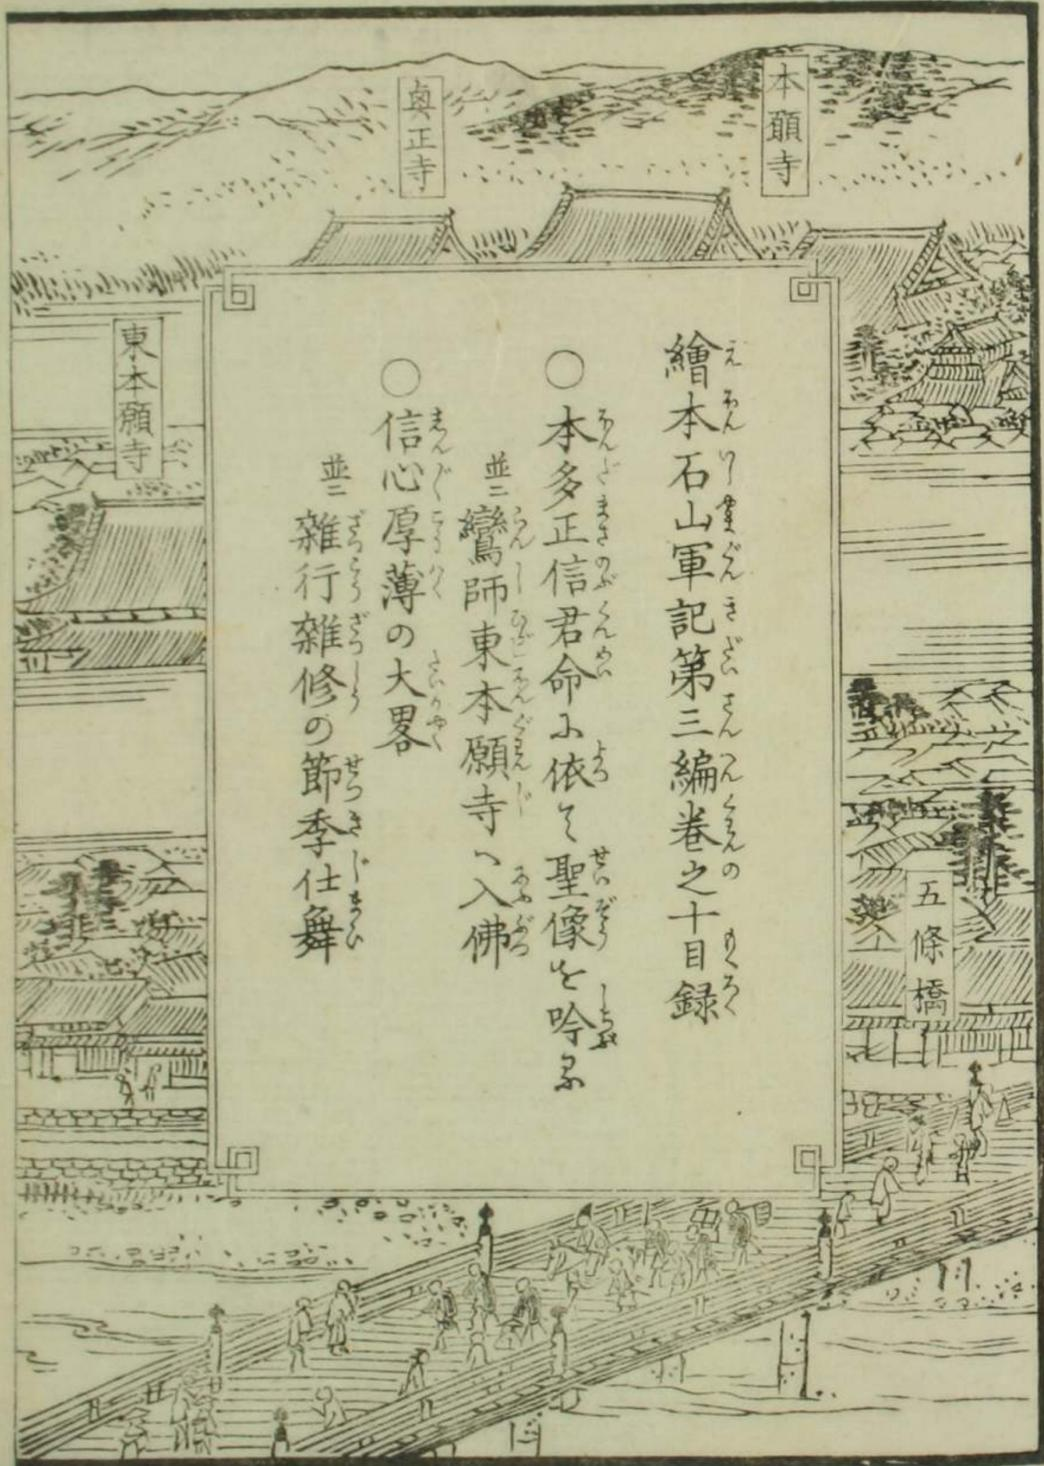 本願寺
真正寺
東本願寺
五條橋
繪本石山軍記第三編卷之十目録
○本多正信君命に依て聖像を吟ふ
並ニ鸞師東本願寺へ入佛
○信心厚薄の大畧
並ニ雜行雜修の節季仕舞